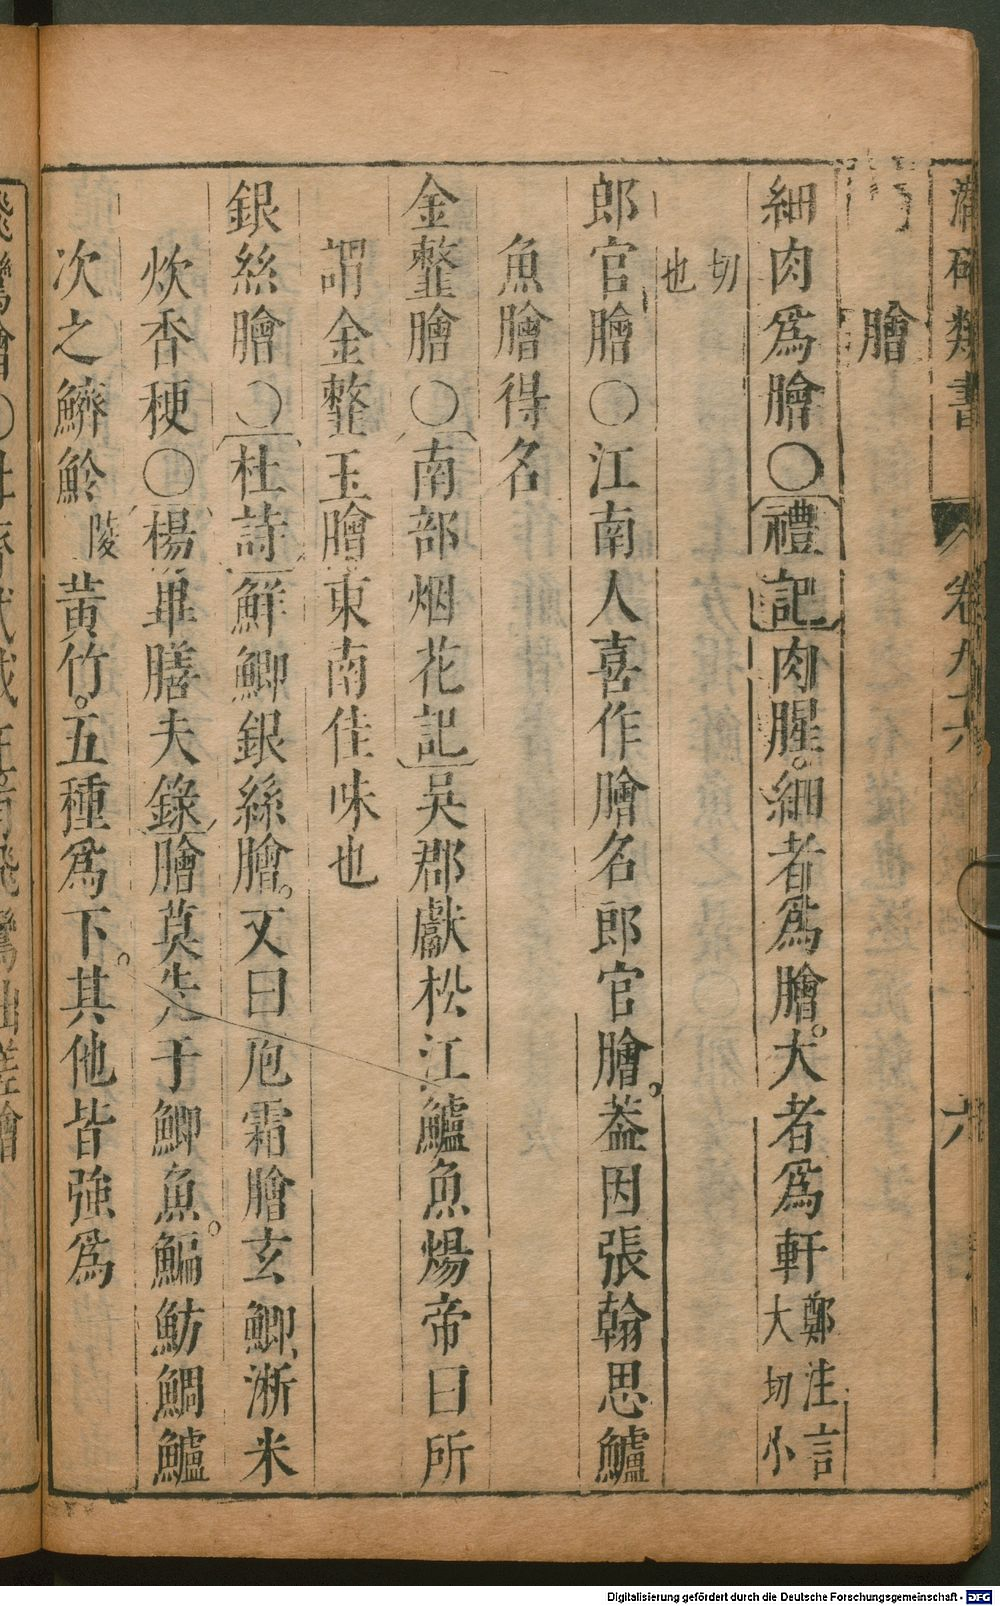 類書 卷九 六
膾
細肉爲膾〇禮記肉腥。細者爲膾。大者爲軒鄭注言大切小
切也
郎官膾〇江南人喜作膾名郎官膾。蓋因張翰思鱸
魚膾得名
金虀膾〇南部烟花記吳郡獻松江鱸魚煬帝曰所
謂金虀玉膾東南佳味也
銀絲膾〇杜詩鮮鯽銀絲膾。又曰庖霜膾玄鯽、淅米
炊香粳〇楊曅膳夫錄膾莫先于鯽魚。鯿魴鯛鱸
次之鱭魿陵黃竹。五種爲下。其他皆強爲
Digitalisierung gefördert durch die Deutsche Forschungsgemeinschaft - DFG